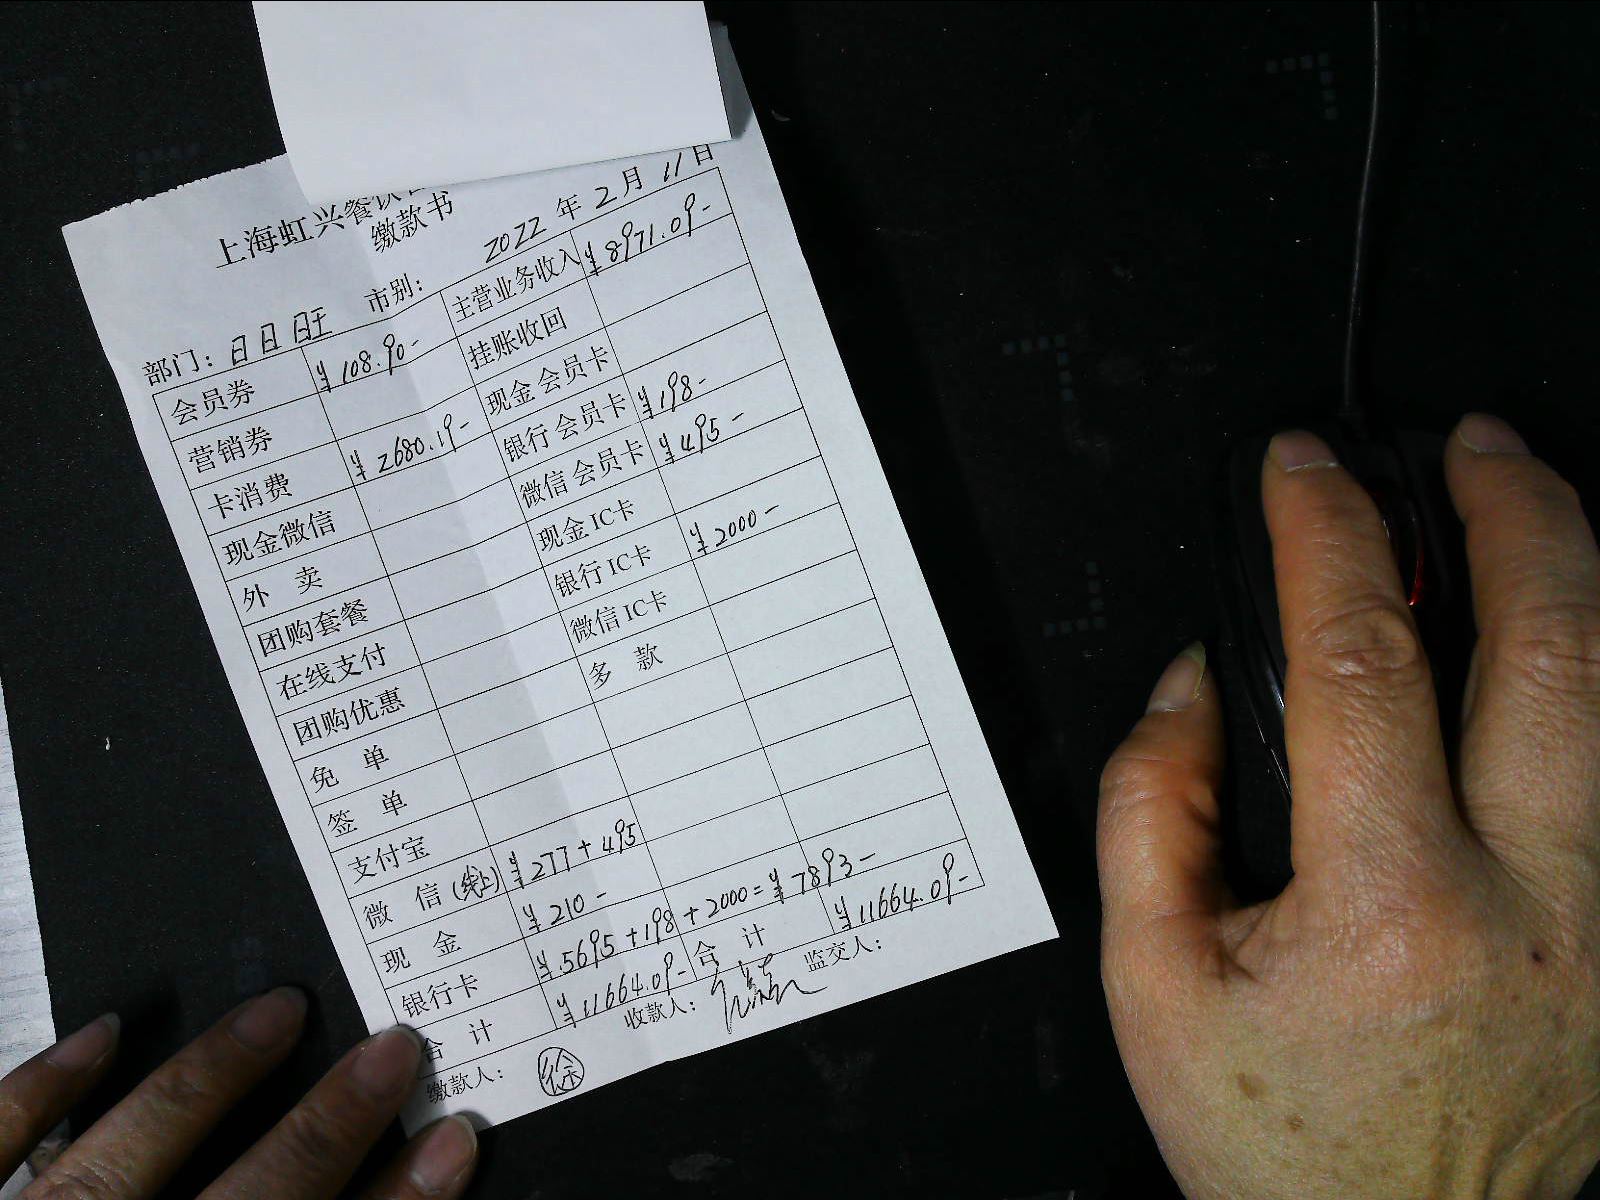 上海虹兴餐饮
缴款书
2022 年 2 月 11 日
部门: 日日旺 市别:
会员券 ¥108.90- 主营业务收入 ¥8971.09-
营销券 挂账收回
卡消费 ¥2680.19- 现金会员卡
现金微信 银行会员卡 ¥198-
外 卖 微信会员卡 ¥495-
团购套餐 现金IC卡
在线支付 银行IC卡 ¥2000-
团购优惠 微信IC卡
免 单 多 款
签 单
支付宝
微 信(线上) ¥277+495
现 金 ¥210-
银行卡 ¥5695+198+2000=¥7893-
合 计 ¥11664.09- 合 计 ¥11664.09-
缴款人: 徐 收款人: 监交人: